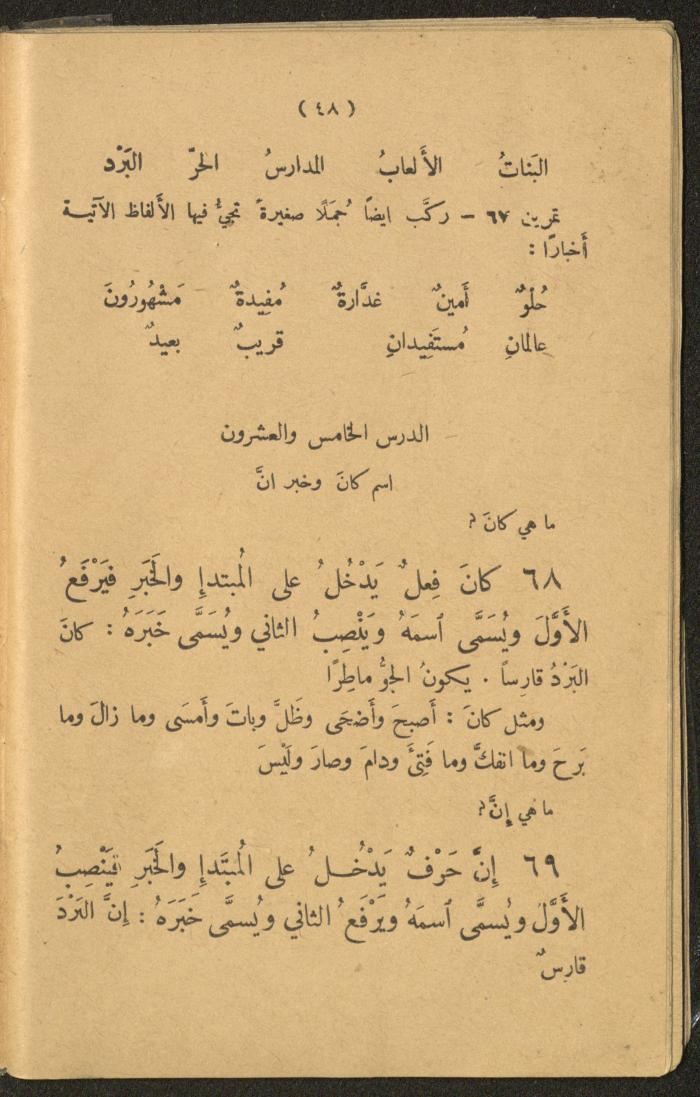 ( ٤٨ )
البَناتُ الأَلعابُ المدارسُ الحَرّ البَرْد
تمرين ٦٧ – ركَّب ايضاً جُمَلًا صغيرةً تجيُّ فيها الأَلفاظ الآتية
أَخبارًا :
حُلْوٌ أَمينٌ غدَّارةٌ مُفِيدةٌ مَشْهُورُونَ
عالمانِ مُستَفِيدانِ قريبٌ بعيدٌ
الدرس الخامس والعشرون
اسم كانَ وخبر انَّ
ما هي كانَ ?
٦٨ كانَ فِعلٌ يَدْخُلُ على المُبتدإِ والخَبَرِ فيَرْفَعُ
الأَوَّلَ ويُسَمَّى ٱسمَهُ ويَنْصِبُ الثاني ويُسَمَّى خَبَرَهُ : كانَ
البَرْدُ قارِساً . يكونُ الجوُّ ماطِرًا
ومثل كانَ : أَصبحَ وأَضحَى وظَلَّ وباتَ وأَمسَى وما زالَ وما
بَرِحَ وما انفكَّ وما فَتِئَ ودامَ وصارَ ولَيْسَ
ما هي إِنَّ ?
٦٩ إِنَّ حَرْفٌ يَدْخُلُ على المُبتَدإِ والخَبَرِ فيَنْصِبُ
الأَوَّلَ ويُسمَّى ٱسمَهُ ويَرْفَعُ الثاني ويُسمَّى خَبَرَهُ : إِنَّ البَرْدَ
قارسٌ